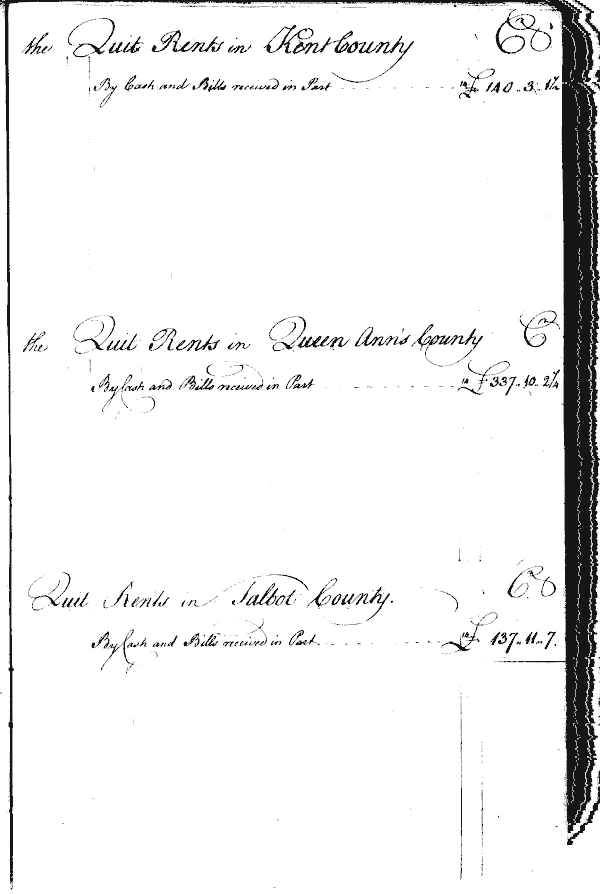 the Quit Rents in Kent County Cr
By Cash and Bills received in Part £ 140 .. 3 .. 1½
the Quit Rents in Queen Ann's County Cr
By Cash and Bills received in Part £ 337 .. 10 .. 2¼
Quit Rents in Talbot County. Cr
By Cash and Bills received in Part £ 137 .. 11 .. 7.